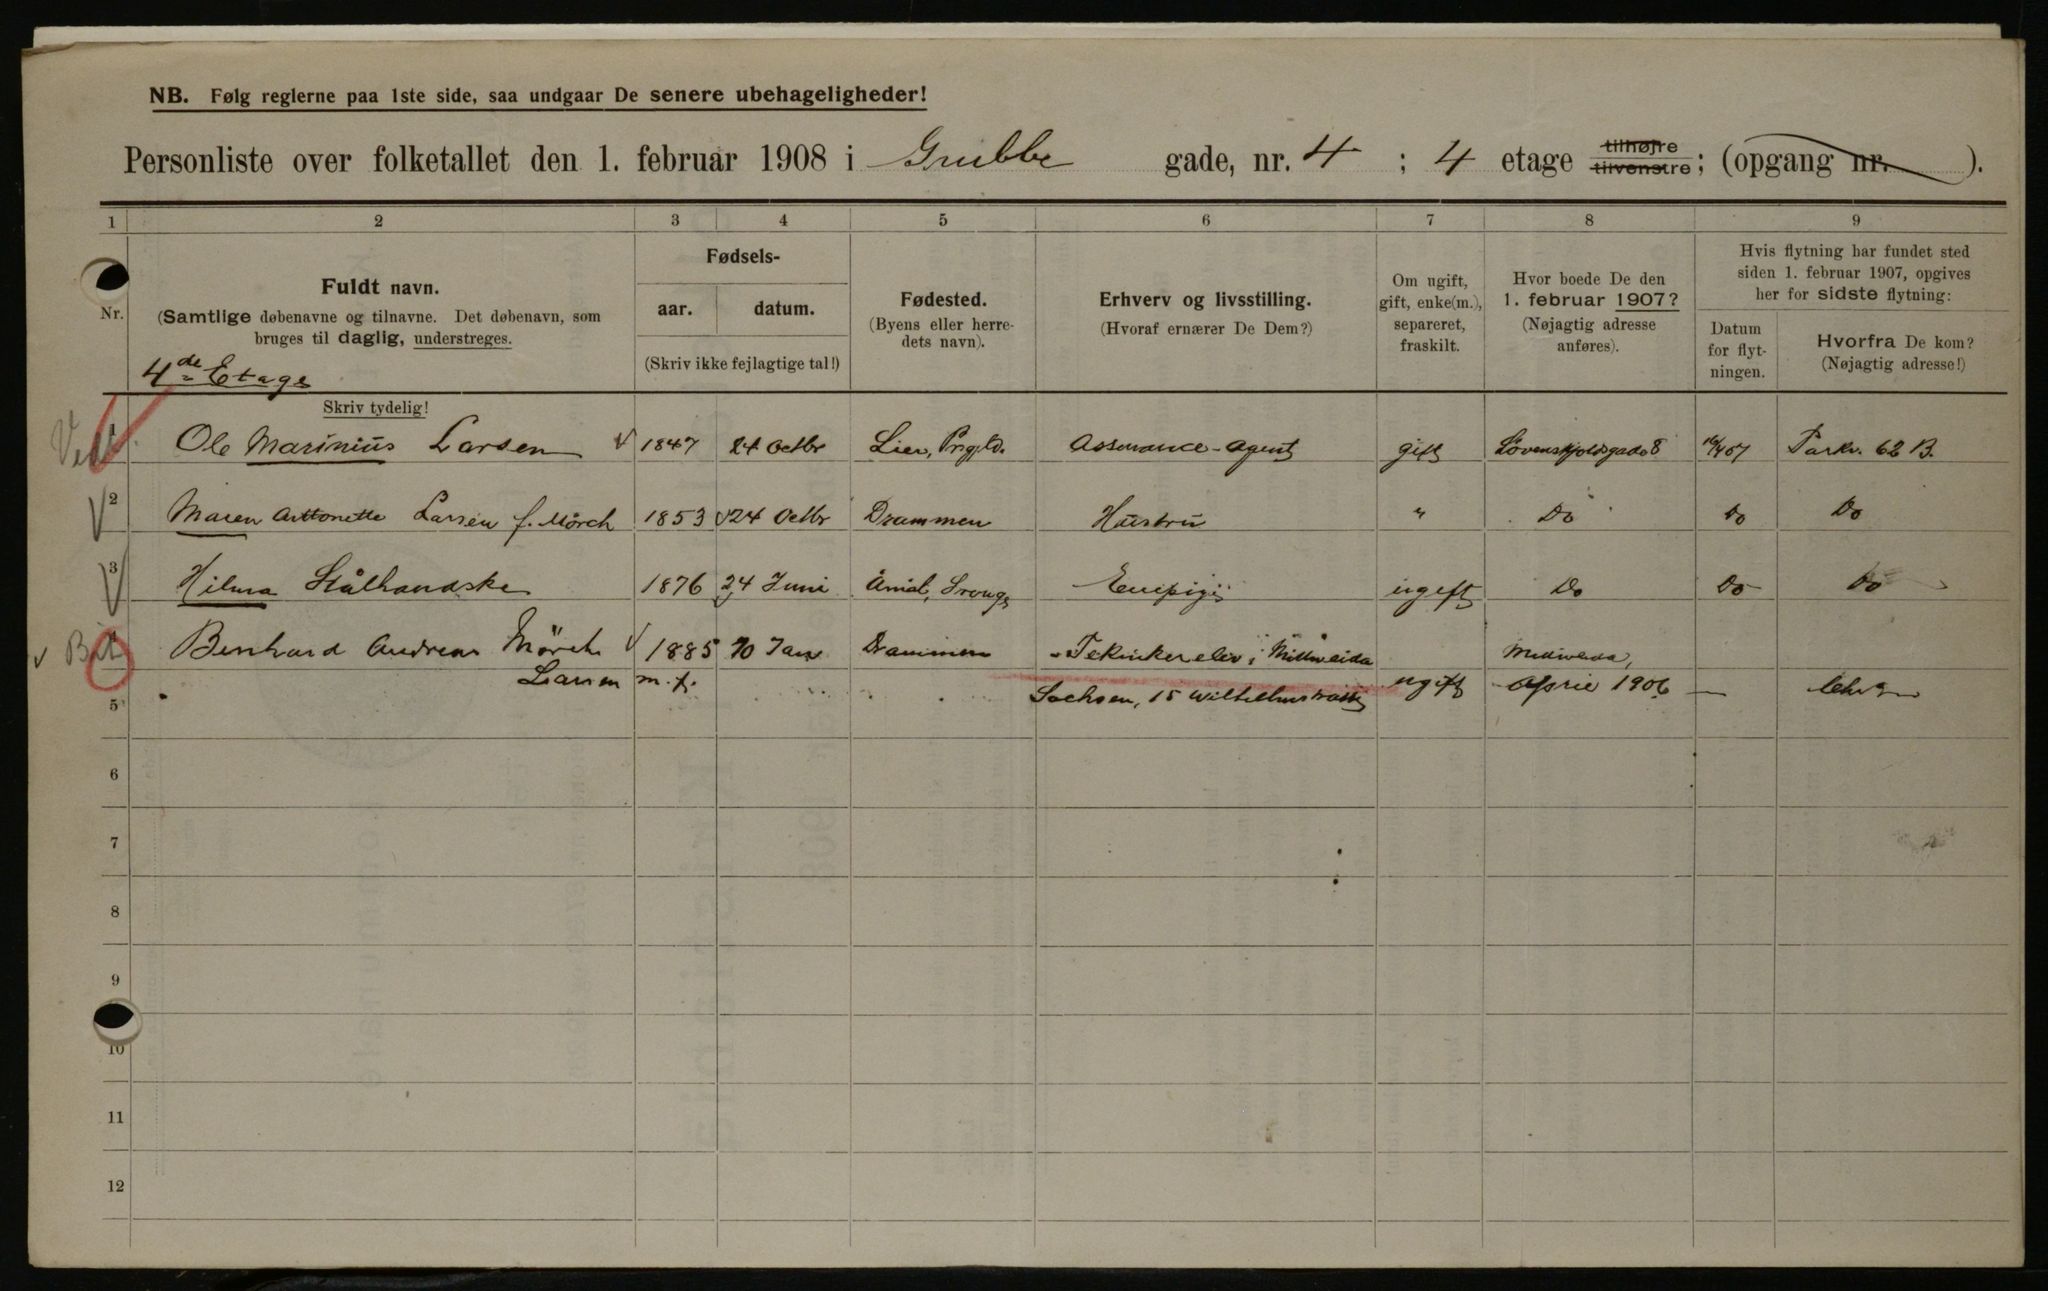 NB. Følg reglerne paa 1ste side, saa undgaar De senere ubehageligheder!
Personliste over folketallet den 1. februar 1908 i Grubbe gade, nr. 4 ; 4 etage tilhøjre tilvenstre; (opgang nr. ).
1 2 3 4 5 6 7 8 9
Nr.
Fuldt navn.
(Samtlige døbenavne og tilnavne. Det døbenavn, som
bruges til daglig, understreges.
4de Etage
Skriv tydelig!
Fødsels-
aar. datum.
(Skriv ikke fejlagtige tal!)
Fødested.
(Byens eller herre-
dets navn).
Erhverv og livsstilling.
(Hvoraf ernærer De Dem?)
Om ugift,
gift, enke(m.),
separeret,
fraskilt.
Hvor boede De den
1. februar 1907?
(Nøjagtig adresse
anføres).
Hvis flytning har fundet sted
siden 1. februar 1907, opgives
her for sidste flytning:
Datum
for flyt-
ningen.
Hvorfra De kom?
(Nøjagtig adresse!)
1 Ole Marinius Larsen 1847 24 Octbr Lier, Assurance-Agent gift Løvenskjoldsgade 8 Parkv. 62 B.
2 Maren Anttonette Larsen f. Mörch 1853 24 Octbr Drammen Hustru " Do Do Do
3 Hilma Stålhandske 1876 24 Juni Åmål, ugift Do Do Do
4 Bernhard Andreas Mörch 1885 10 Jan Drammen Tekniker elev i Mittweida
Larsen m.k. Sachsen, 15 ugift April 1906 —
5
6
7
8
9
10
11
12